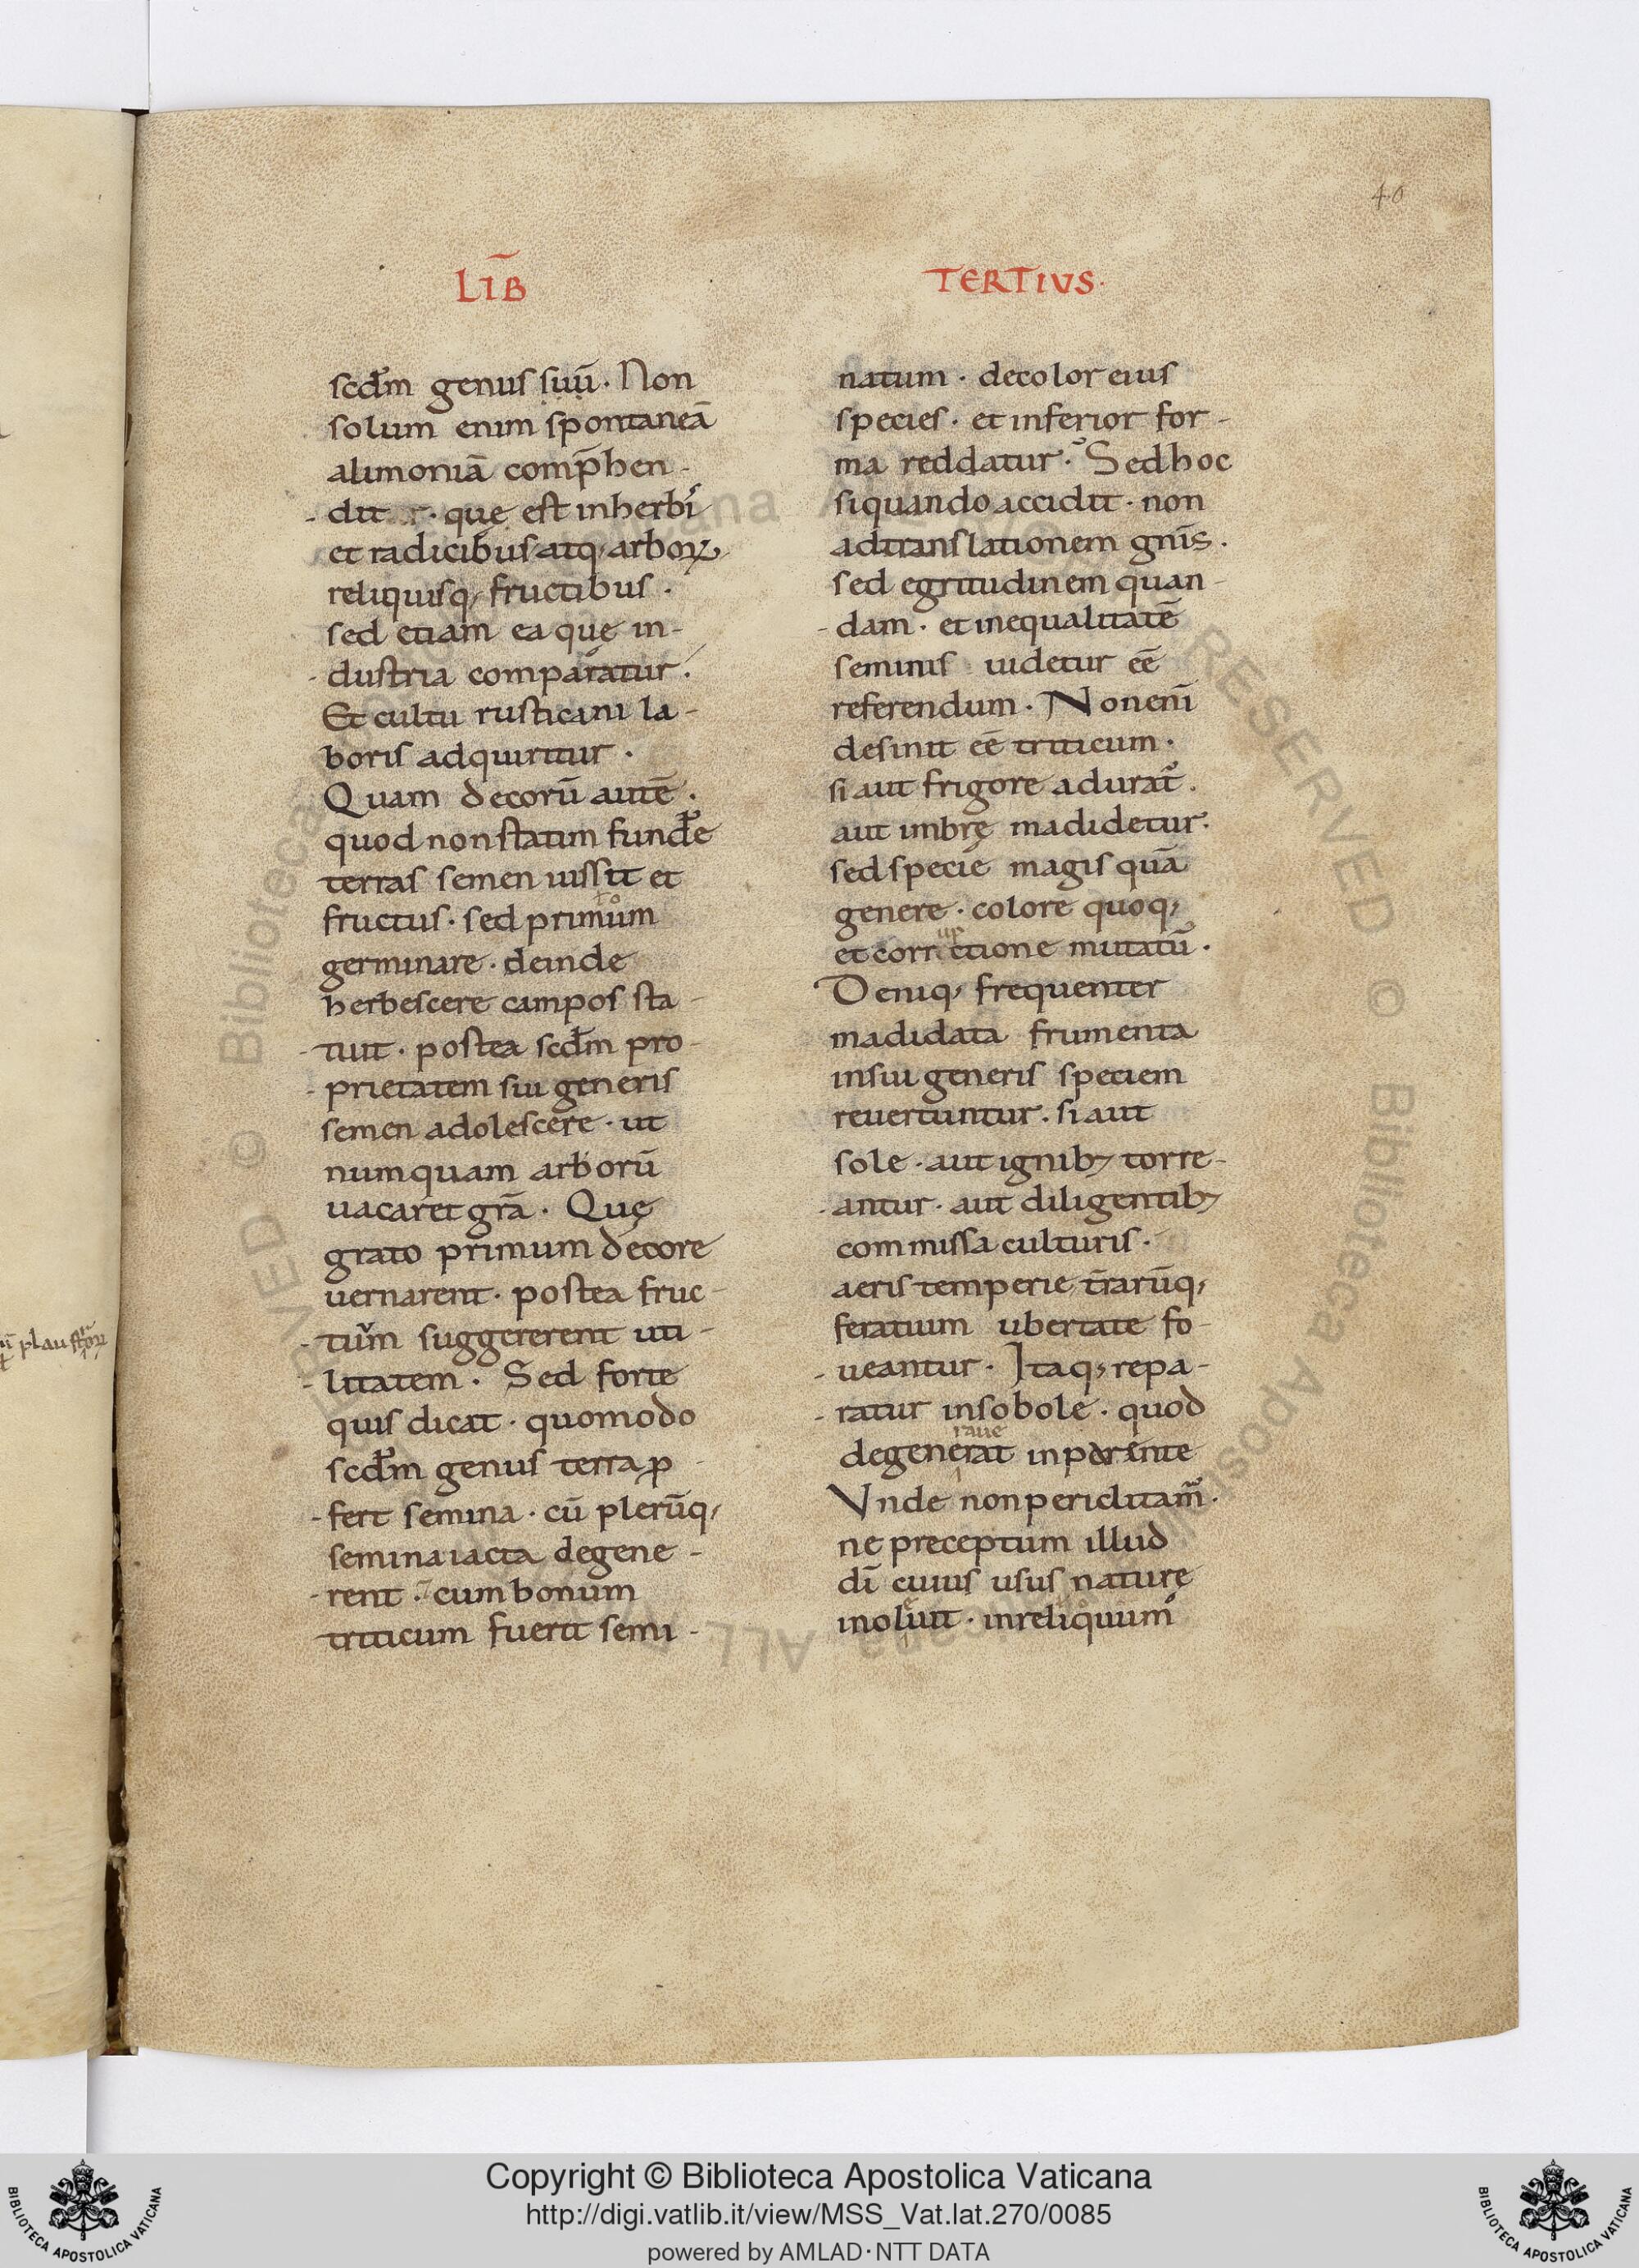 40
LIB̅ TERTIVS·
scd̅m genus suu̅· Non
solum enim spontanea̅
alimonia̅ comp̅hen-
dit · que̜ est inherbis
et radicibus atq; arborꝝ
reliquisq; fructibus ·
sed etiam ea que̜ in-
dustria comparatur·
Et cultu rusticani la-
boris adquiritur ·
Quam decoru̅ aute̅·
quod non statim fund̅e
terras semen iussit et
fructus· sed primum
germinare · deinde
herbescere campos sta-
tuit · postea scd̅m pro-
prietatem sui generis
semen adolescere · ut
numquam arboru̅
uacaret gra̅· Que̜
grato primum decore
uernarent· postea fruc-
tuum suggererent uti-
litatem· Sed forte
quis dicat · quomodo
scd̅m genus terra ꝓ
fert semina · cu̅ pleru̅q;
semina iacta degene-
rent · cum bonum
triticum fuerit semi-
natum · decolor eius
species · et inferior for-
ma reddatur· Sed hoc
siquando accidit · non
ad translationem gn̅is·
sed egritudinem quan-
dam· et inequalitate̅
seminis uidetur ee̅
referendum· Non eni̅
desinit ee̅ triticum·
si aut frigore adurat᷒·
aut imbre̜ madidetur·
sed specie magis qua̅
genere · colore quoq;
up
et corrctione mutatu̅·
Deniq; frequenter
madidata frumenta
insui generis speciem
reuertuntur· si aut
sole · aut ignib; torre-
antur· aut diligentib;
commissa culturis·
aeris temperie t̅raru̅q;
feratium ubertate fo-
ueantur· Itaq; repa-
ratur insobole · quod
raue
degenerat in parente
Vnde non periclitam᷒·
ne preceptum illud
di̅ cuius usus nature̜
inoleuit· inreliquum
plaustrorꝝ
Copyright © Biblioteca Apostolica Vaticana
http://digi.vatlib.it/view/MSS_Vat.lat.270/0085
powered by AMLAD·NTT DATA
BIBLIOTECA APOSTOLICA VATICANA
BIBLIOTECA APOSTOLICA VATICANA